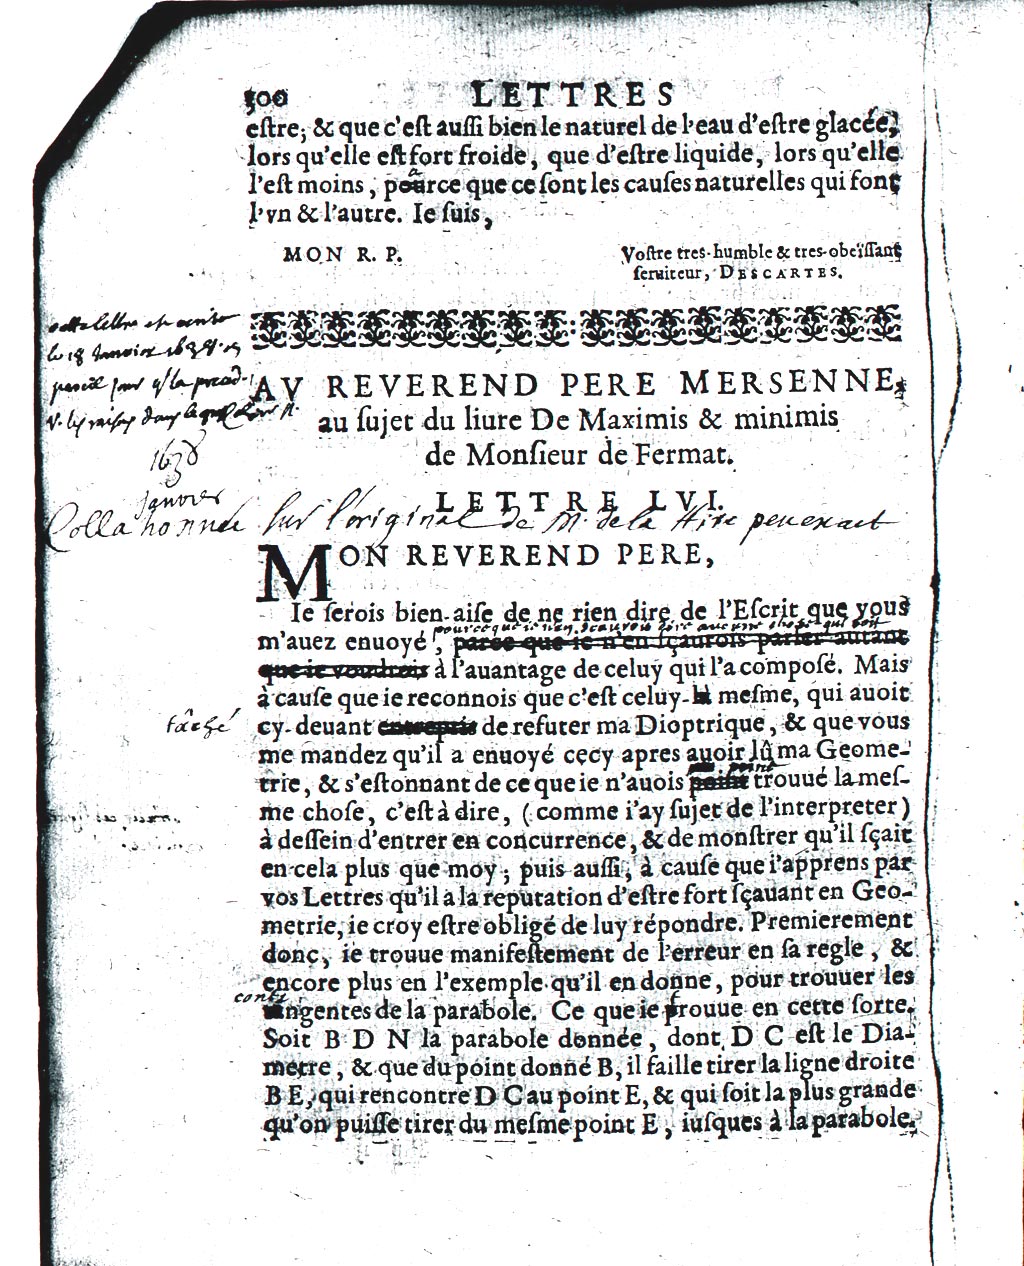 300 LETTRES
eſtre; & que c'eſt auſſi bien le naturel de l'eau d'eſtre glacée,
lors qu'elle eſt fort froide, que d'eſtre liquide, lors qu'elle
l'eſt moins, pource que ce ſont les cauſes naturelles qui font
l'vn & l'autre. Ie ſuis,
MON R. P.
Voſtre tres-humble & tres-obeïſſant
ſeruiteur, DESCARTES.
cette lettre est écrite
le 18 Janvier 1638
pareil jour q/ la
V. les raisons dans
AV REVEREND PERE MERSENNE,
au ſujet du liure De Maximis & minimis
de Monſieur de Fermat.
1638
Janvier
LETTRE LVI.
Collationnée sur l'original de M. de la Hire
MON REVEREND PERE,
Ie ſerois bien-aiſe de ne rien dire de l'Eſcrit que vous
pource que ie n'en sçaurois dire aucune chose qui soit
m'auez enuoyé, parce que ie n'en ſçaurois parler autant
que ie voudrois à l'auantage de celuy qui l'a compoſé. Mais
à cauſe que ie reconnois que c'eſt celuy-là meſme, qui auoit
tâché
cy-deuant entrepris de refuter ma Dioptrique, & que vous
me mandez qu'il a enuoyé cecy apres auoir lû ma Geome-
point
trie, & s'eſtonnant de ce que ie n'auois point trouué la meſ-
me choſe, c'eſt à dire, (comme i'ay ſujet de l'interpreter)
à deſſein d'entrer en concurrence, & de monſtrer qu'il ſçait
en cela plus que moy; puis auſſi, à cauſe que i'apprens par
vos Lettres qu'il a la reputation d'eſtre fort ſçauant en Geo-
metrie, ie croy eſtre obligé de luy répondre. Premierement
donc, ie trouue manifeſtement de l'erreur en ſa regle, &
encore plus en l'exemple qu'il en donne, pour trouuer les
conti
tangentes de la parabole. Ce que ie prouue en cette ſorte.
Soit B D N la parabole donnée, dont D C eſt le Dia-
metre, & que du point donné B, il faille tirer la ligne droite
B E, qui rencontre D C au point E, & qui ſoit la plus grande
qu'on puiſſe tirer du meſme point E, iuſques à la parabole.